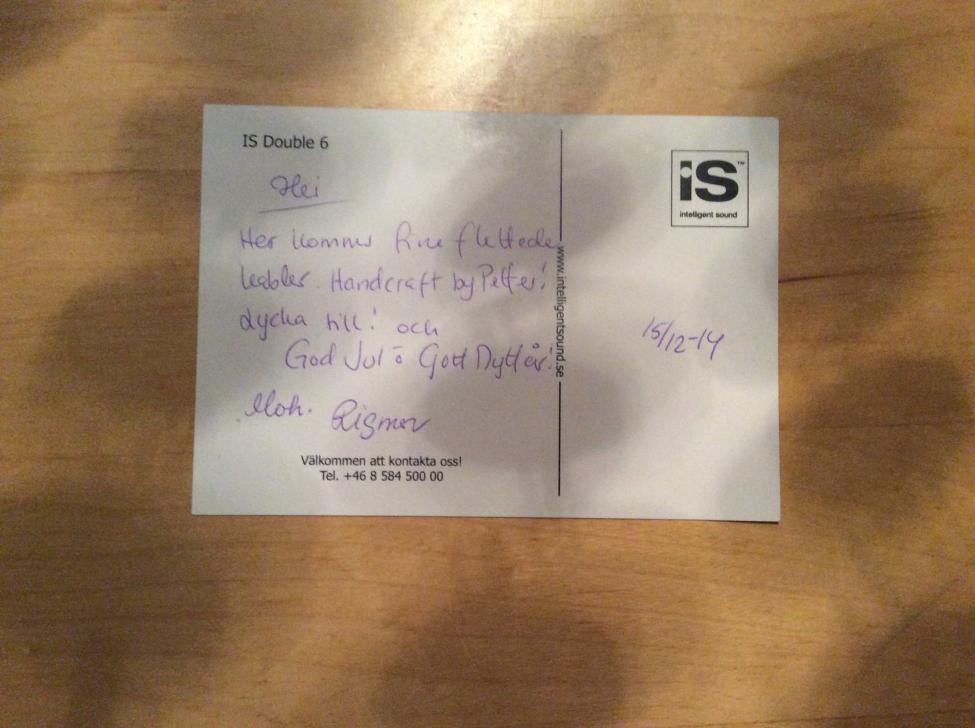 IS Double 6
Hei
Her kommer fine flettede
kabler. Handcraft by Petter!
Lycka till! och
God Jul o Gott Nytt år!
Mvh. Rigmor
Välkommen att kontakta oss!
Tel. +46 8 584 500 00
www.intelligentsound.se
iS™
intelligent sound
15/12-14